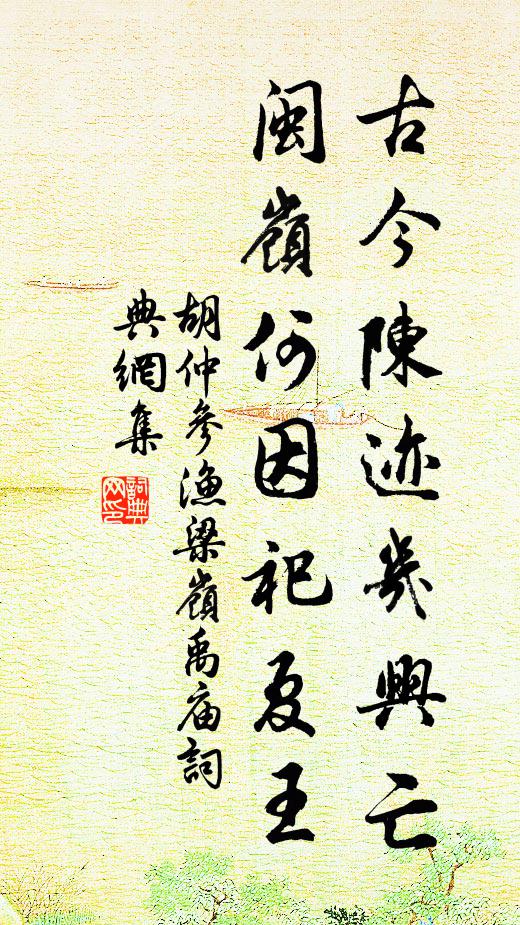 古今陳迹幾興亡
閩嶺何因祀夏王
胡仲參漁梁嶺禹庙詞
典網集
詞典网印